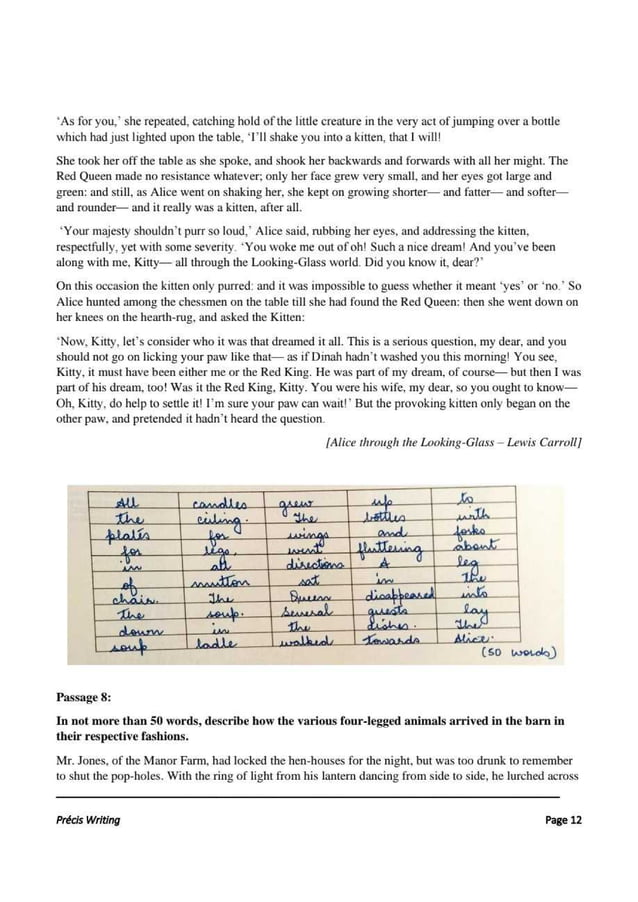 ‘As for you,’ she repeated, catching hold of the little creature in the very act of jumping over a bottle
which had just lighted upon the table, ‘I’ll shake you into a kitten, that I will!
She took her off the table as she spoke, and shook her backwards and forwards with all her might. The
Red Queen made no resistance whatever; only her face grew very small, and her eyes got large and
green: and still, as Alice went on shaking her, she kept on growing shorter— and fatter— and softer—
and rounder— and it really was a kitten, after all.
‘Your majesty shouldn’t purr so loud,’ Alice said, rubbing her eyes, and addressing the kitten,
respectfully, yet with some severity. ‘You woke me out of oh! Such a nice dream! And you’ve been
along with me, Kitty— all through the Looking-Glass world. Did you know it, dear?’
On this occasion the kitten only purred: and it was impossible to guess whether it meant ‘yes’ or ‘no.’ So
Alice hunted among the chessmen on the table till she had found the Red Queen: then she went down on
her knees on the hearth-rug, and asked the Kitten:
‘Now, Kitty, let’s consider who it was that dreamed it all. This is a serious question, my dear, and you
should not go on licking your paw like that— as if Dinah hadn’t washed you this morning! You see,
Kitty, it must have been either me or the Red King. He was part of my dream, of course— but then I was
part of his dream, too! Was it the Red King, Kitty. You were his wife, my dear, so you ought to know—
Oh, Kitty, do help to settle it! I’m sure your paw can wait!’ But the provoking kitten only began on the
other paw, and pretended it hadn’t heard the question.
[Alice through the Looking-Glass – Lewis Carroll]
All candles grew up to
the ceiling. The bottles with
plates for wings and forks
for legs, went fluttering about
in all directions A leg
of mutton sat in the
chair. The Queen disappeared into
the soup. Several guests lay
down in the dishes. The
soup ladle walked towards Alice.
(50 words)
Passage 8:
In not more than 50 words, describe how the various four-legged animals arrived in the barn in
their respective fashions.
Mr. Jones, of the Manor Farm, had locked the hen-houses for the night, but was too drunk to remember
to shut the pop-holes. With the ring of light from his lantern dancing from side to side, he lurched across
Précis Writing Page 12